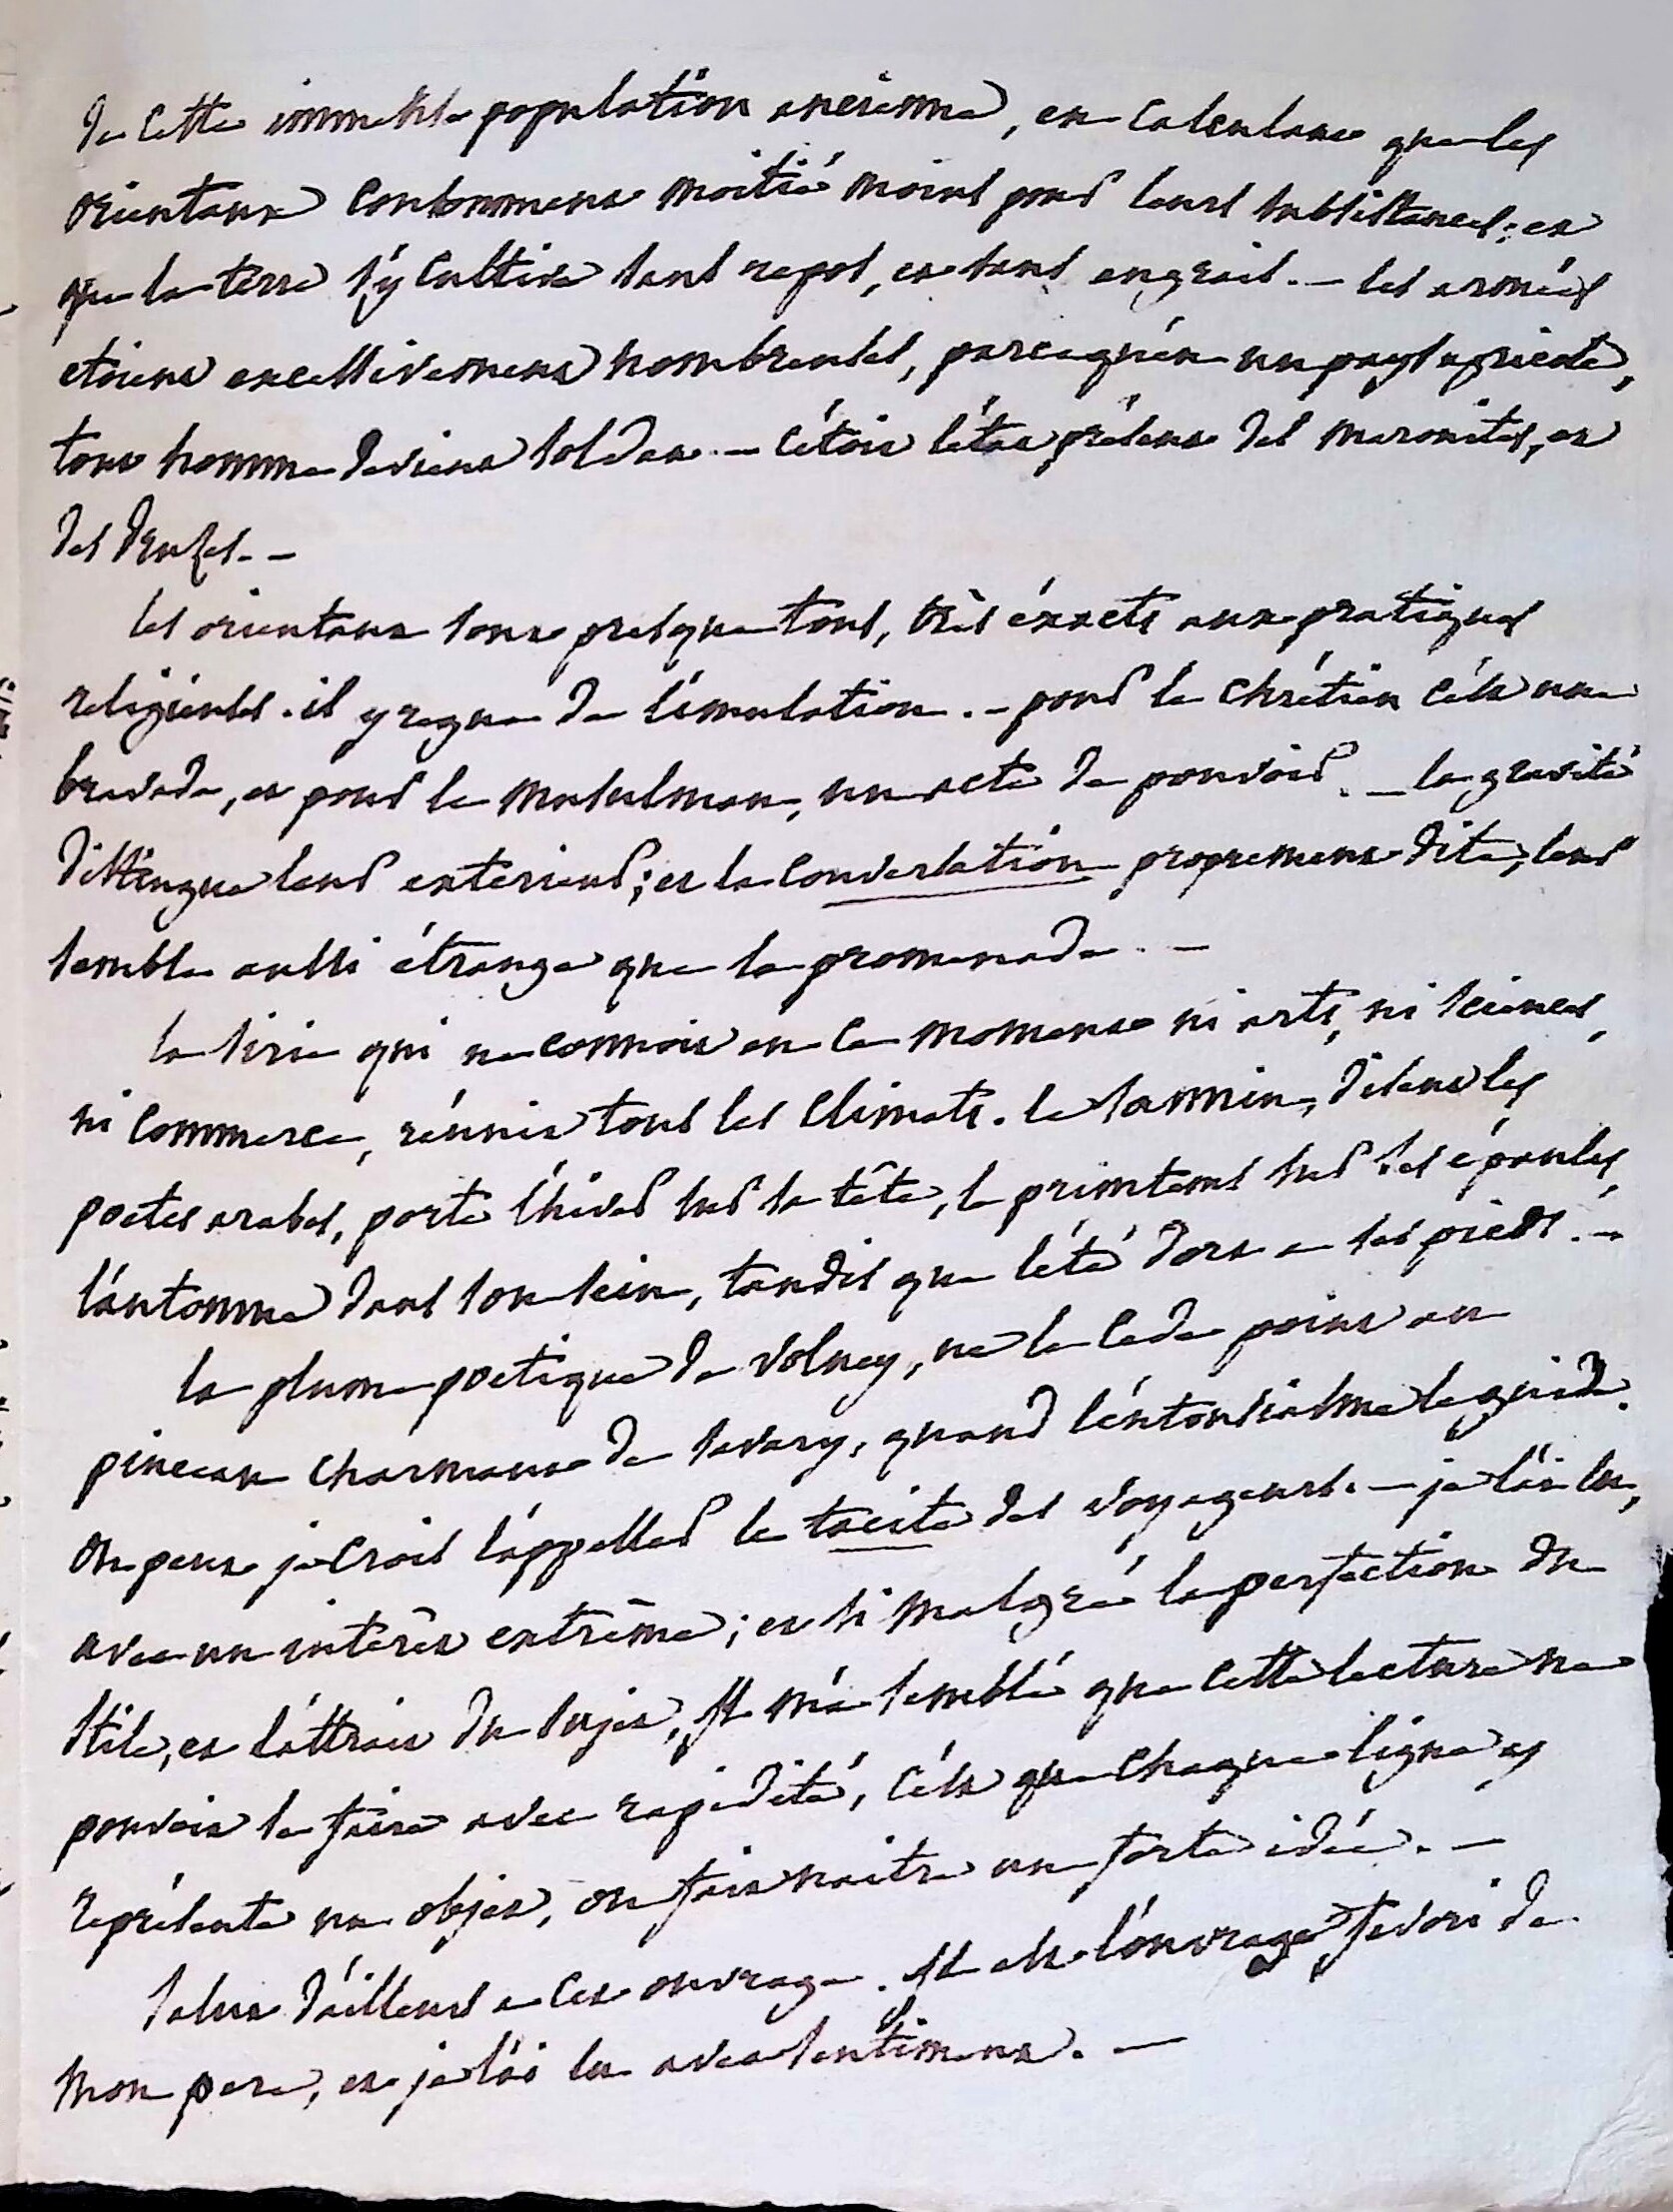 de cette immense population ancienne, en calculant que les
orientaux consomment moitié moins pour leurs subsistances; et
que la terre s'y cultive sans repos, et sans engrais. — les armées
etoient excessivement nombreuses, parcequ'en un pays agricole,
tout homme devient soldat. — c'étoit l'état présent des maronites, et
des druses. —
les orientaux sont presque tous, très éxacts aux pratiques
religieuses. il y regne de l'émulation. — pour le chrétien c'est une
bravade, et pour le musulman, un acte de pouvoir. — la gravité
distingue leur exterieur; et la conversation proprement dite, leur
semble aussi étrange que la promenade. —
la sirie qui ne connoit en ce moment ni arts, ni sciences,
ni commerce, réunit tous les climats. le sannin, disent les
poetes arabes, porte l'hiver sur sa tête, le printems sur ses épaules,
l'automne dans son sein, tandis que l'été dort a ses pieds. —
la plume poetique de volney, ne le cede point au
pinceau charmant de savary, quand l'entousiasme le guide.
on peut je crois l'appeller le tacite des voyageurs. — je l'ai lu,
avec un intérêt extrême; et si malgré la perfection du
stile, et l'attrait du sujet, il m'a semblé que cette lecture ne
pouvoit se faire avec rapidité, c'est que chaque ligne y
représente un objet, ou fait naitre une forte idée. —
salut d'ailleurs a cet ouvrage. il est l'ouvrage favori de
mon pere, et je l'ai lu avec sentiment. —